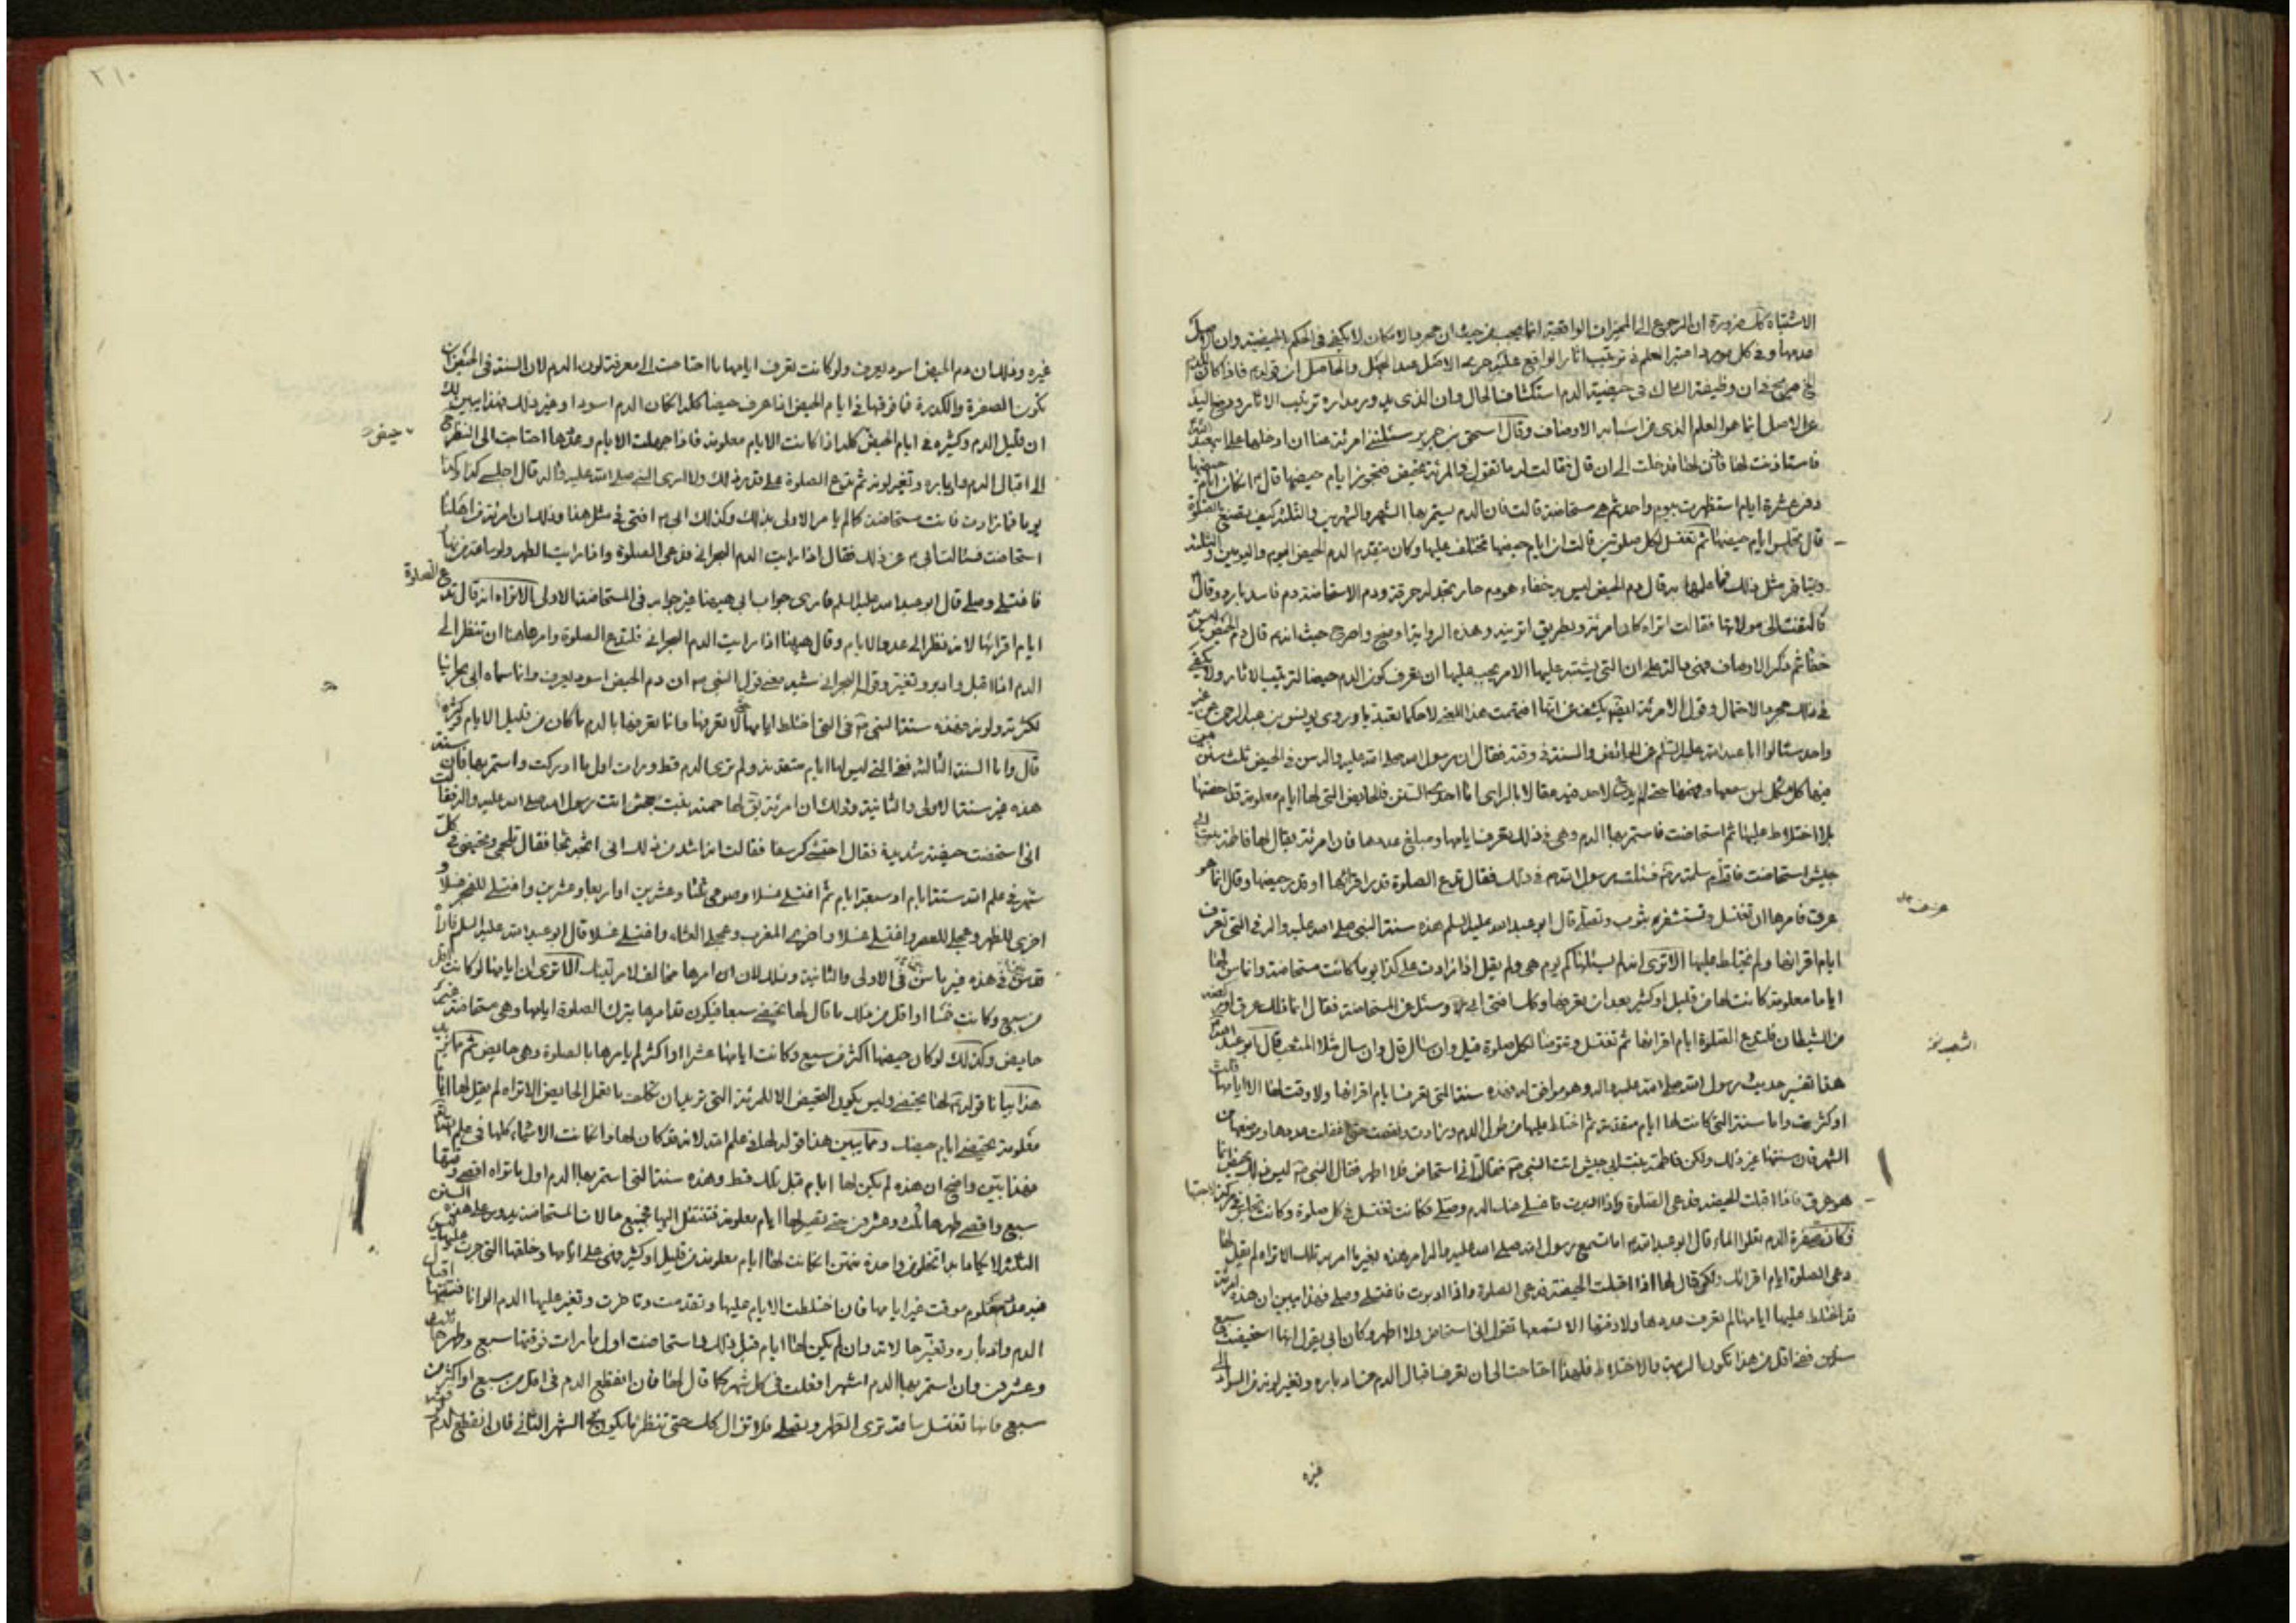 الاشتباه كك ضرورة ان الرجوع الى المميزات الواقعية انما يجب من حيث ان مجرد الامكان لا يكفى فى الحكم بالحيضية وان الاصل
عدمها وفى كل مورد اعتبر العلم فى ترتيب اثار الواقع عليه جرى الاصل عند الجهل والحاصل ان قوله فاذا كان للدم
فى ان وظيفة الشاك فى حيضية الدم استكشاف الحال وان الذى يدور مداره ترتيب الاثار ورفع اليد
عن الاصل انما هو العلم الذى من اسبابه الاوصاف وقال اسحق بن جرير سئلتنى امرئة منا ان ادخلها على ابيعبد الله
فاستاذنت لها فاذن لها فدخلت الى ان قال فقالت له ما تقول فى المرئة تحيض فتجوز ايام حيضها قال ان كان ايام حيضها
دون عشرة ايام استظهرت بيوم واحد ثم هى مستحاضة قالت فان الدم يستمر بها الشهر والشهرين والثلثة كيف تصنع بالصلوة
قال تجلس ايام حيضها ثم تغتسل لكل صلوتين قالت ان ايام حيضها تختلف عليها وكان يتقدم الدم الحيض اليوم واليومين والثلثة
ويتاخر مثل ذلك فما علمها به قال دم الحيض ليس به خفاء هو دم حار تجد له حرقة ودم الاستحاضة دم فاسد بارد وقال
فالتفتت الى مولاتها فقالت اتراه كان امرئة وبطريق اتريه وهذه الرواية اوضح واصرح حيث انه قال دم الحيض ليس به
خفا ثم ذكر الاوصاف فهى دالة على ان التى يشتبه عليها الامر يجب عليها ان تعرف كون الدم حيضا لترتيب الاثار ولا يكفى
فى ذلك مجرد الاحتمال وقول الامرئة ايضا يكشف عن انها فهمت هذا المعنى لا حكما تعبديا وروى يونس بن عبد الرحمن عن غير
واحد سئالوا ابا عبد الله عليه السلم عن الحائض والسنة فى وقته فقال ان رسول الله صلى الله عليه واله سن فى الحيض ثلث سنن بين
فيها كل مشكل لمن سمعها وفهمها حتى لم يدع لاحد فيه مقالا بالراى اما احدى السنن فالحايض التى لها ايام معلومة قد احصتها
بلا اختلاط عليها ثم استحاضت فاستمر بها الدم وهى فى ذلك تعرف ايامها ومبلغ عددها فان امرئة يقال لها فاطمة بنت ابى
حبيش استحاضت فاتت ام سلمة فسئلت رسول الله ص فى ذلك فقال تدع الصلوة قدر اقرائها او قدر حيضها وقال انما هو
عرق فامرها ان تغتسل وتستثفر بثوب وتصلى قال ابو عبد الله عليه السلم هذه سنة النبى صلى الله عليه واله فى التى تعرف
ايام اقرائها ولم تختلط عليها الا ترى انه لم يسئلها كم يوم هى ولم يقل اذا زادت على كذا يوما كانت مستحاضة وانما سن لها
اياما معلومة كانت لها من قليل او كثير بعد ان تعرفها وكك افتى ابى وسئل عن المستحاضة فقال انما ذلك عرق او ركضة
من الشيطان فلتدع الصلوة ايام اقرائها ثم تغتسل وتتوضا لكل صلوة قيل وان سال قال وان سال مثل المثعب قال ابو عبد الله
هذا تفسير حديث رسول الله صلى الله عليه واله وهو موافق له فهذه سنة التى تعرف ايام اقرائها ولا وقت لها الا ايامها قلت
او كثرت واما سنة التى كانت لها ايام متقدمة ثم اختلط عليها من طول الدم وزادت ونقصت حتى اغفلت عددها وموضعها من
الشهر فان سنتها غير ذلك ولكن فاطمة بنت ابى حبيش اتت النبى ص فقالت انى استحاض فلا اطهر فقال النبى ص ليس ذلك بحيض انما
هو عرق فاذا اقبلت الحيضة فدعى الصلوة واذا ادبرت فاغسلى عنك الدم وصلى فكانت تغتسل فى كل صلوة وكانت تجلس فى مركن لاختها
فكانت صفرة الدم تعلو الماء قال ابو عبد الله اما تسمع رسول الله صلى الله عليه واله امر هذه بغير ما امر به تلك الا تراه لم يقل لها
دعى الصلوة ايام اقرائك ولكن قال لها اذا اقبلت الحيضة فدعى الصلوة واذا ادبرت فاغتسلى وصلى فهذا يبين ان هذه امرئة
قد اختلط عليها ايامها لم تعرف عددها ولا وقتها الا تسمعها تقول انى استحاض ولا اطهر وكان ابى يقول انها استحيضت سبع
سنين ففى اقل من هذا تكون الريبة والاختلاط فلهذا احتاجت الى ان تعرف اقبال الدم من ادباره وتغير لونه من السواد الى
غيره
عرق
المثعب
٢١٠
غيره وذلك ان دم الحيض اسود يعرف ولو كانت تعرف ايامها ما احتاجت الى معرفة لون الدم لان السنة فى الحيض ان
تكون الصفرة والكدرة فما فوقها فى ايام الحيض اذا عرف حيضا كله ان كان الدم اسود او غير ذلك فهذا يبين لك
ان قليل الدم وكثيره فى ايام الحيض كله اذا كانت الايام معلومة فاذا جهلت الايام وعددها احتاجت الى النظر ح
الى اقبال الدم وادباره وتغير لونه ثم تدع الصلوة على قدر ذلك ولا ارى النبى صلى الله عليه واله قال اجلسى كذا وكذا
يوما فما زادت فانت مستحاضة كما لم يامر الاولى بذلك وكذلك ابى افتى فى مثل هذا وذلك ان امرئة من اهلنا
استحاضت فسئالت ابى عن ذلك فقال اذا رايت الدم البحرانى فدعى الصلوة واذا رايت الطهر ولو ساعة من نهار
فاغتسلى وصلى قال ابو عبد الله عليه السلم فارى جواب ابى هيهنا غير جوابه فى المستحاضة الاولى الا تراه انه قال تدع الصلوة
ايام اقرائها لانه نظر الى عدد الايام وقال هيهنا اذا رايت الدم البحرانى فلتدع الصلوة وامرها هنا ان تنظر الى
الدم اذا اقبل وادبر وتغير وقوله البحرانى شبه معنى قول النبى ص ان دم الحيض اسود يعرف وانما سماه ابى بحرانيا
لكثرته ولونه فهذه سنة النبى ص فى التى اختلط ايامها حتى لا تعرفها وانما تعرفها بالدم ما كان من قليل الايام وكثيره
قال واما السنة الثالثة ففى التى ليس لها ايام متقدمة ولم ترى الدم قط ورات اول ما ادركت واستمر بها فان سنة
هذه غير سنة الاولى والثانية وذلك ان امرئة يق لها حمنة بنت جحش اتت رسول الله صلى الله عليه واله فقالت
انى استحضت حيضة شديدة فقال احتشى كرسفا فقالت انه اشد من ذلك انى اثجه ثجا فقال تلجمى وتحيضى فى كل
شهر فى علم الله ستة ايام او سبعة ايام ثم اغتسلى غسلا وصومى ثلثا وعشرين او اربعا وعشرين واغتسلى للفجر غسلا و
اخرى للظهر وعجلى للعصر واغتسلى غسلا واخرى المغرب وعجلى العشاء واغتسلى غسلا قال ابو عبد الله عليه السلم فاراه
قد سن فى هذه غير ما سن فى الاولى والثانية وذلك لان امرها مخالف لامر تينك الا ترى ان ايامها لو كانت اقل
من سبع وكانت خمسا او اقل من ذلك ما قال لها تحيضى سبعا فيكون قد امرها بترك الصلوة ايامها وهى مستحاضة غير
حايض وكذلك لو كان حيضها اكثر من سبع وكانت ايامها عشرا او اكثر لم يامرها بالصلوة وهى حايض ثم مما يزيد
هذا بيانا قوله لها تحيضى وليس يكون التحيض الا للمرئة التى تريد ان تكلف ما تعمل الحايض الا تراه لم يقل لها اياما
معلومة تحيضى ايام حيضك ومما يبين هذا قوله لها فى علم الله لانه قد كان لها وان كانت الاشياء كلها فى علم الله
فهذا بين واضح ان هذه لم يكن لها ايام قبل تلك قط وهذه سنة التى استمر بها الدم اول ما تراه اقصى وقتها
سبع واقصى طهرها ثلث وعشرون حتى يصير لها ايام معلومة فتنتقل اليها فجميع حالات المستحاضة تدور على هذه السنن
الثلثة لا يكاد ابدا تخلو من واحدة منهن ان كانت لها ايام معلومة من قليل او كثير فهى على ايامها وخلقها التى جرت عليها ليس
فيه عدد معلوم موقت غير ايامها فان اختلطت الايام عليها وتقدمت وتاخرت وتغير عليها الدم الوانا فسنتها اقبال
الدم وادباره وتغير حالاته وان لم يكن لها ايام قبل ذلك واستحاضت اول ما رات فوقتها سبع وطهرها ثلث
وعشرون وان استمر بها الدم اشهرا فعلت فى كل شهر كما قال لها فان انقطع الدم فى اقل من سبع او اكثر من
سبع فانها تغتسل ساعة ترى الطهر وتصلى فلا تزال كك حتى تنظر ما يكون فى الشهر الثانى فان انقطع الدم
حيض